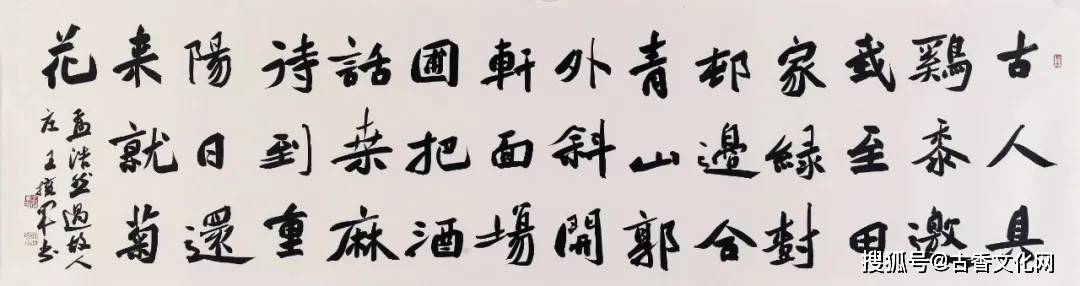 古人具
鷄黍邀
我至田
家緑樹
邨邊合
青山郭
外斜開
軒面場
圃把酒
話桑麻
待到重
陽日還
来就菊
花
孟浩然過故人
庄 王军书
搜狐号@古香文化网